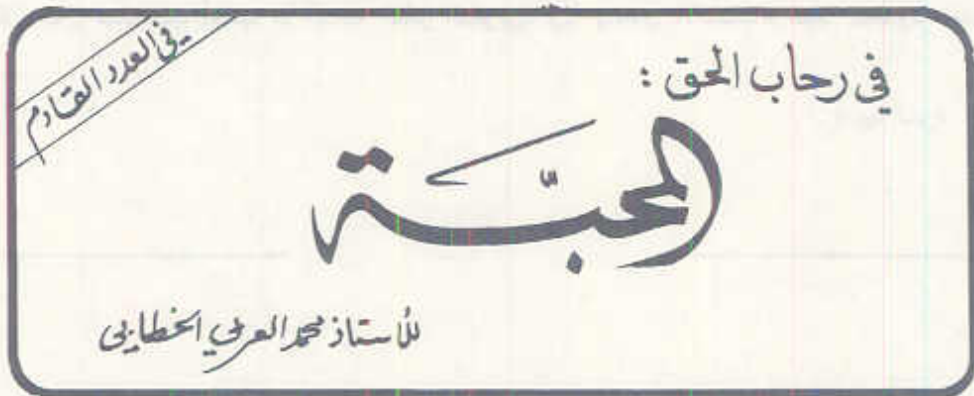 في العدد القادم
في رحاب الحق :
المحبّة
للأستاذ محمد العربي الخطابي